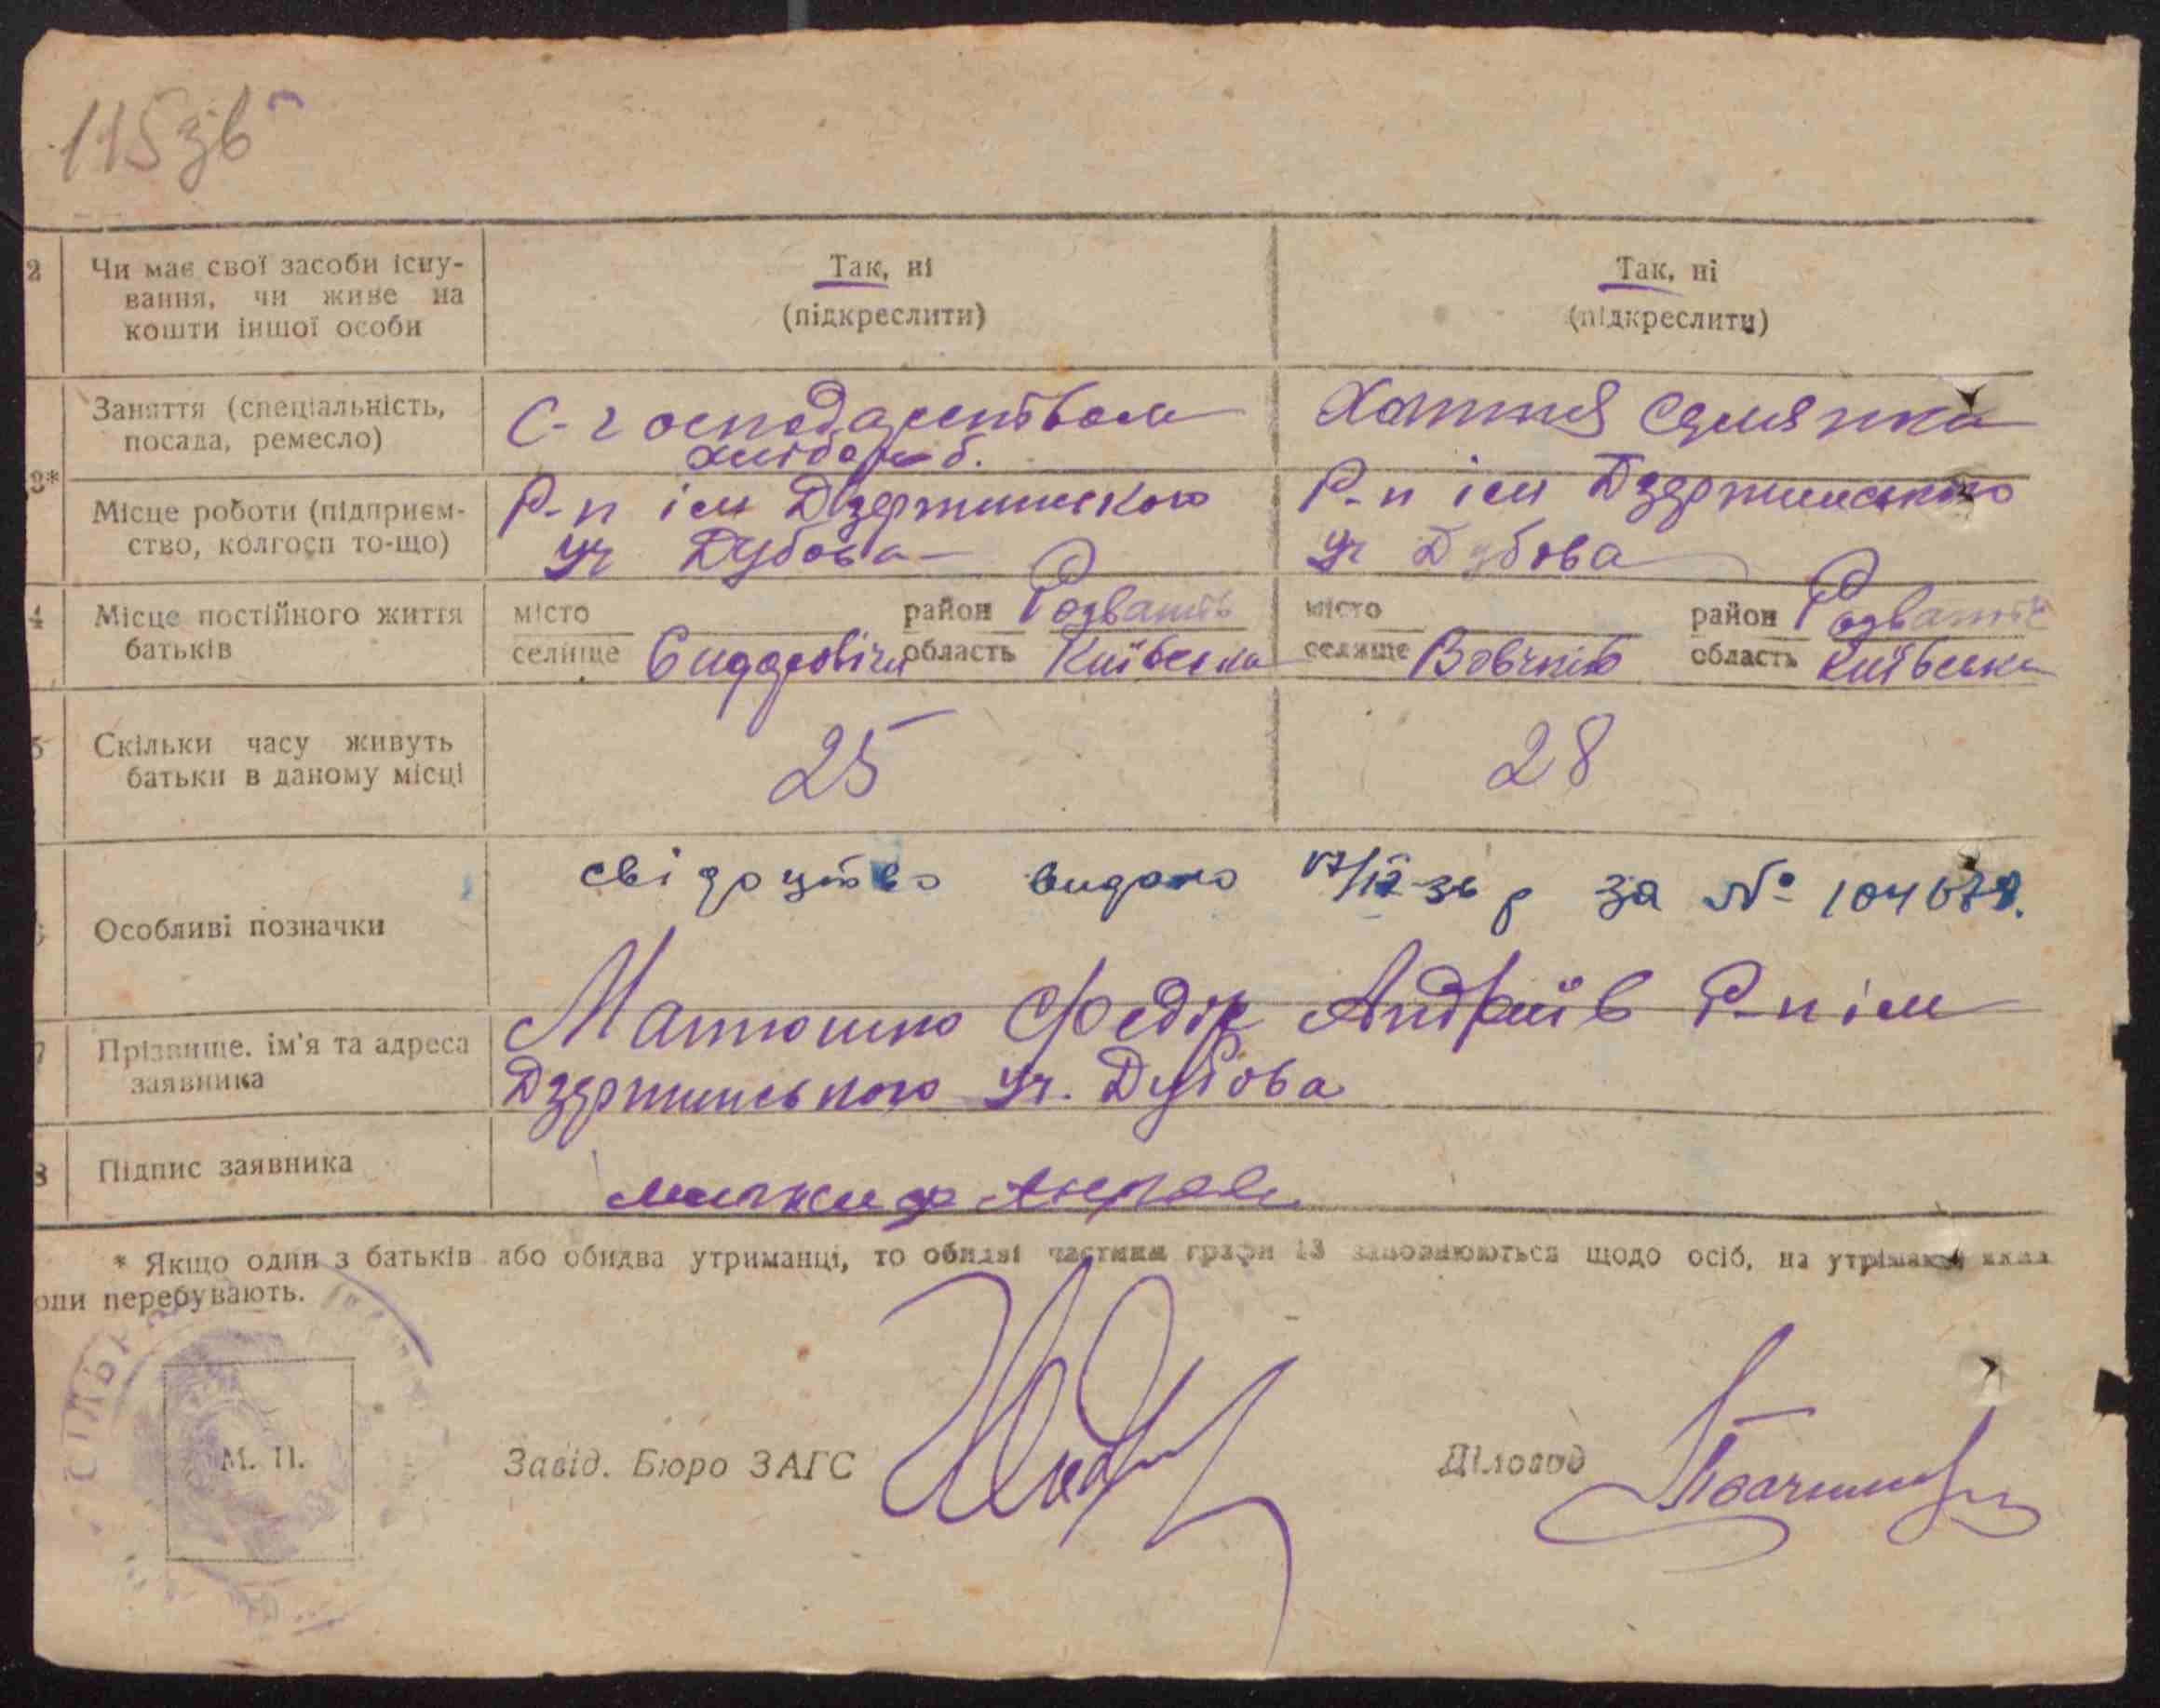 115 зв
2 Чи має свої засоби існу- Так, ні Так, ні
вання, чи живе на (підкреслити) (підкреслити)
кошти іншої особи
Заняття (спеціальність, С-господарством Хатня селянка
посада, ремесло) хлібороб.
3* Місце роботи (підприєм- Р-п ім Дзержинського Р-п ім Дзержинського
ство, колгосп то-що) уч Дубова уч Дубова
4 Місце постійного життя місто район Розваж місто район Розваж
батьків селище область Київська селище Вовчків область Київська
5 Скільки часу живуть 25 28
батьки в даному місці
Особливі позначки свідоцтво видано 17/IV-36 р за №
7 Прізвище. ім'я та адреса Матюшко Федір Андріїв Р-п ім
заявника Дзержинського уч. Дубова
8 Підпис заявника
* Якщо один з батьків або обидва утриманці, то обидві частини графи 13 заповнюються щодо осіб, на утриманні яких
они перебувають.
М. П. Завід. Бюро ЗАГС Діловод